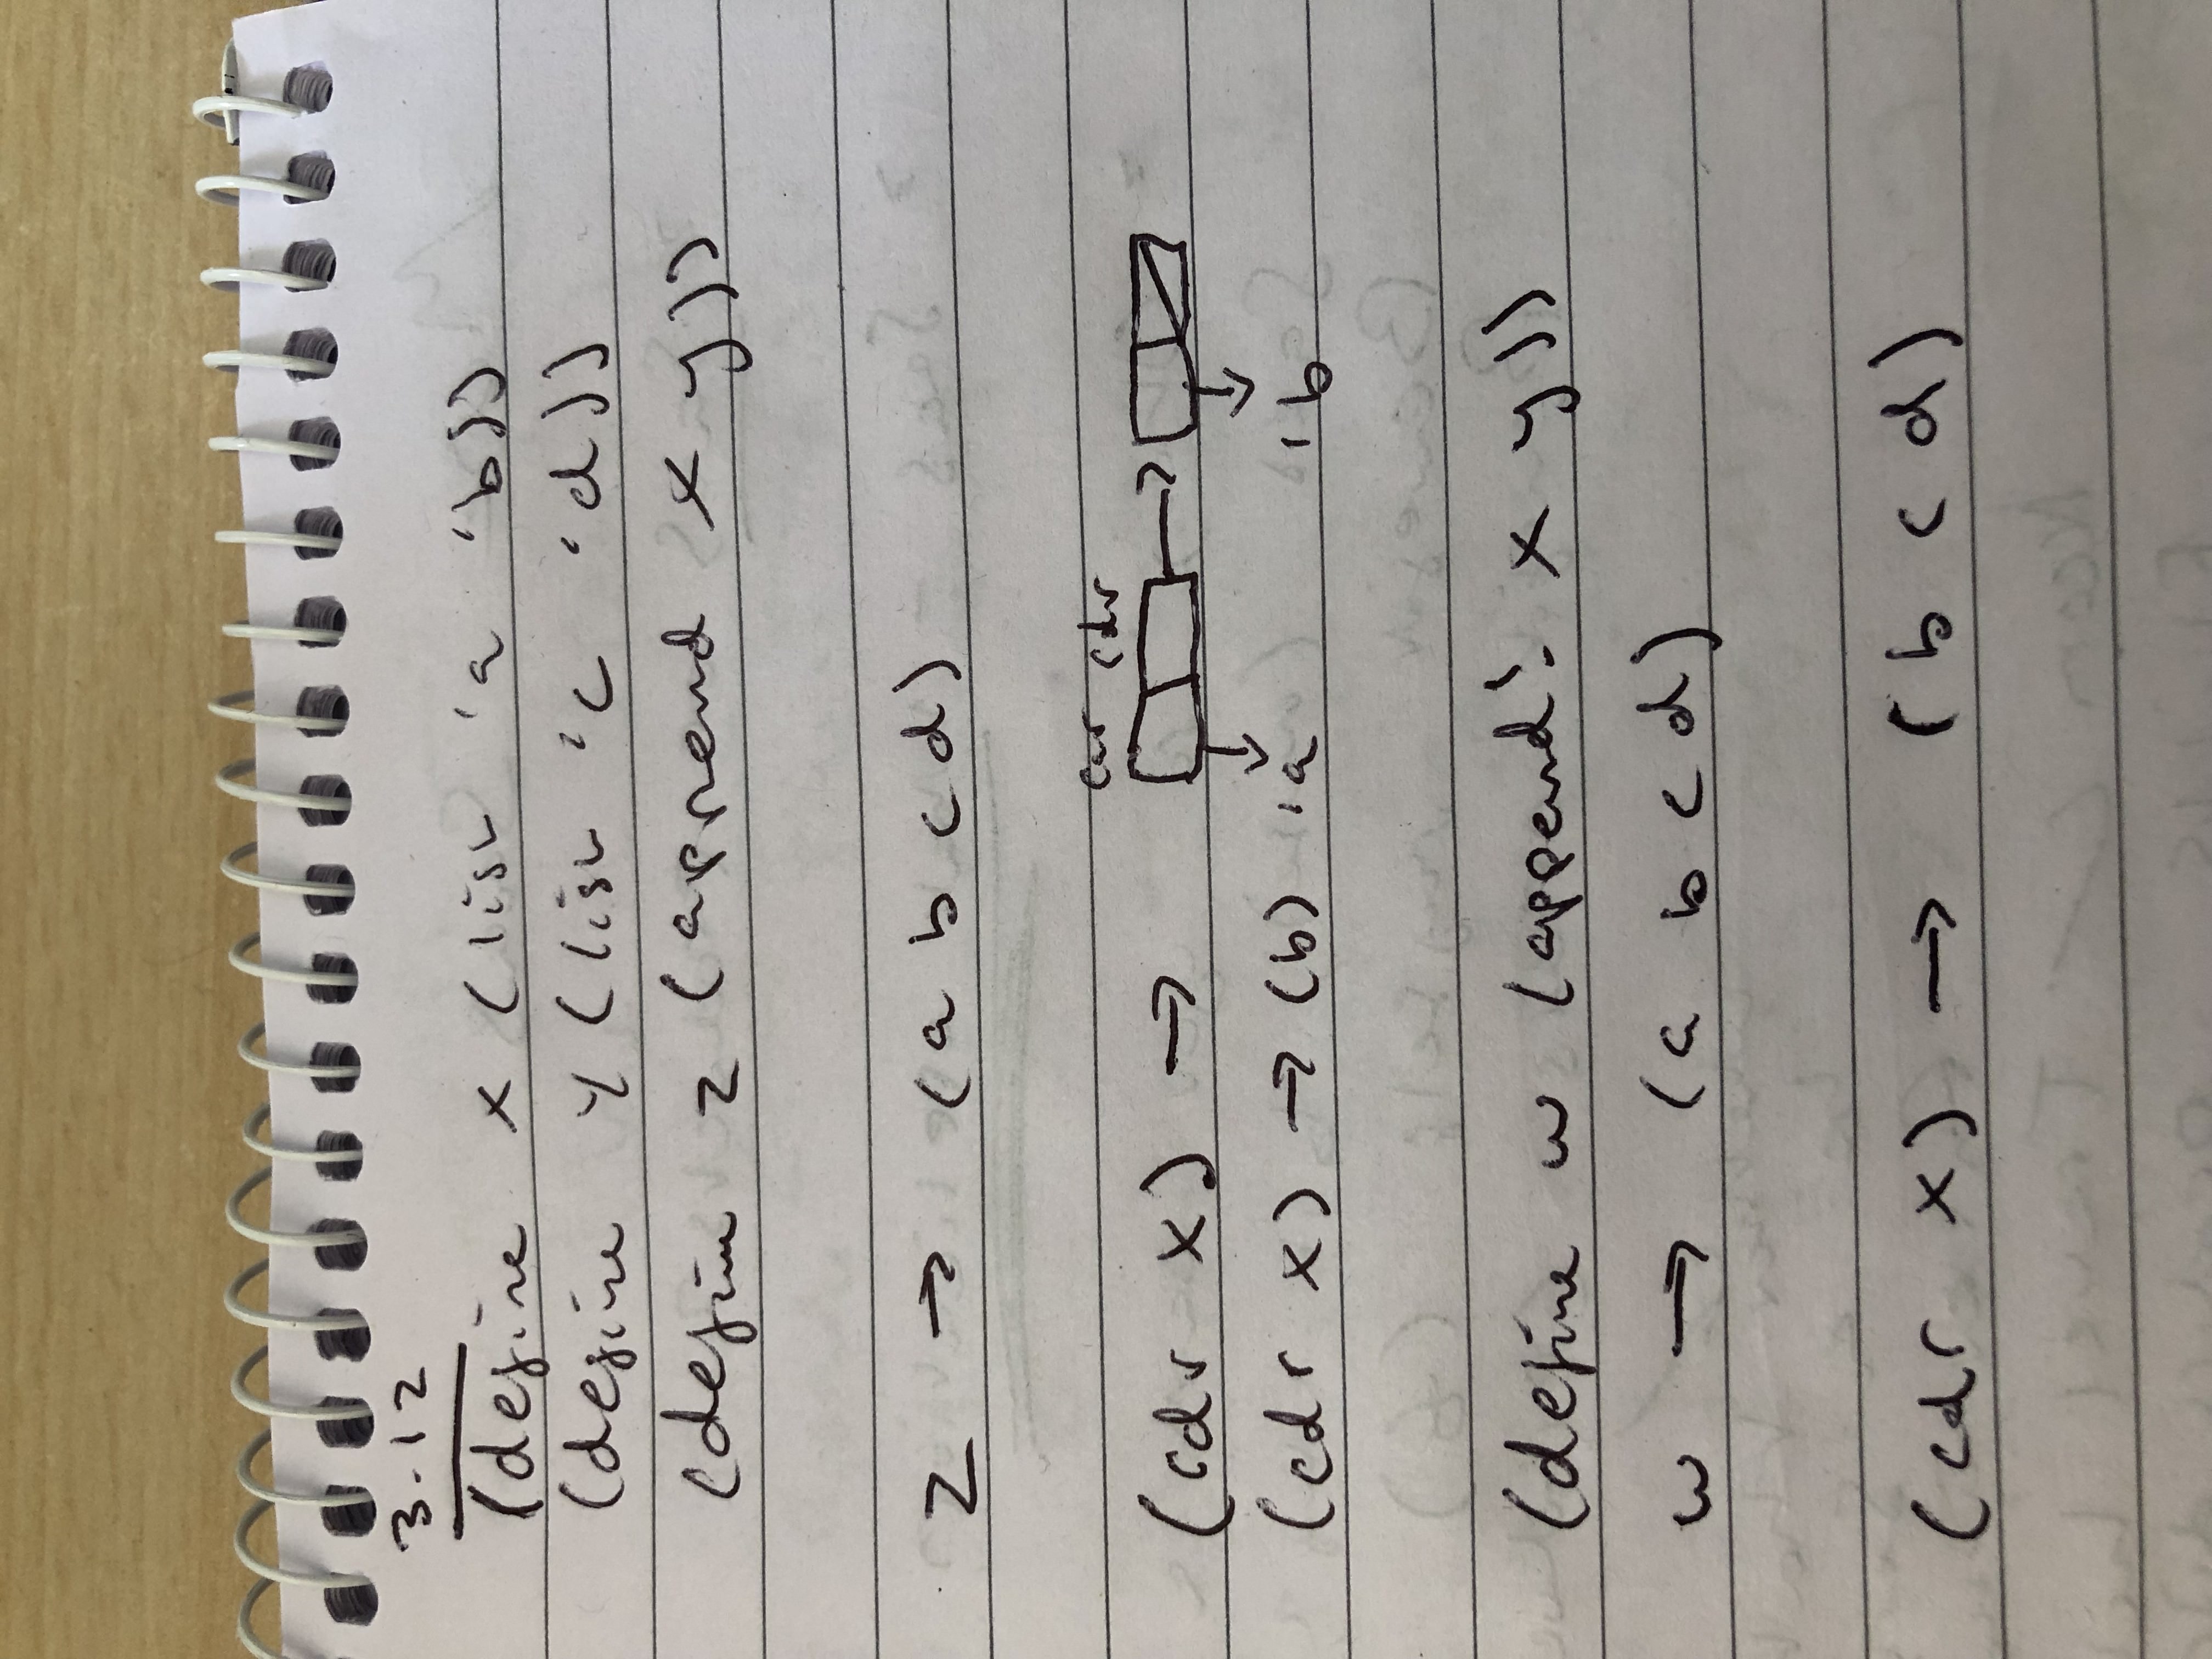 3.12
(define x (list 'a 'b))
(define y (list 'c 'd))
(define z (append x y))
z → (a b c d)
car cdr
(cdr x) →
(cdr x) → (b) 'a 'b
(define w (append! x y))
w → (a b c d)
(cdr x) → (b c d)